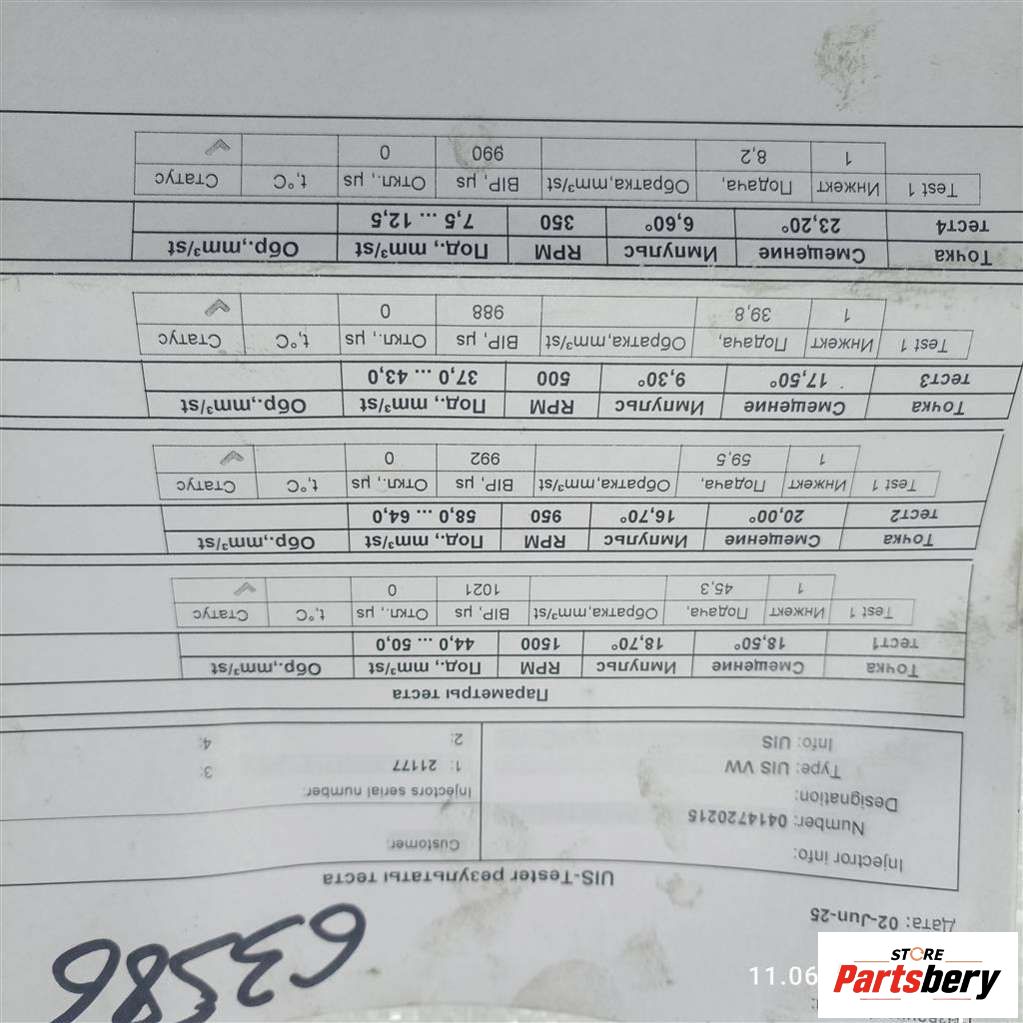 63586
Дата: 02-Jun-25
UIS-Tester результаты теста
Injectror info:
Number: 0414720215
Designation:
Type: UIS VW
Info: UIS
Customer:
Injectors serial number:
1: 21177
2:
3:
4:
Параметры теста
Точка Смещение Импульс RPM Под., mm³/st Обр.,mm³/st
тест1 18,50° 18,70° 1500 44,0 ... 50,0
Test 1 Инжект Подача, Обратка,mm³/st BIP, µs Откл., µs t,°C Статус
1 45,3 1021 0
Точка Смещение Импульс RPM Под., mm³/st Обр.,mm³/st
тест2 20,00° 16,70° 950 58,0 ... 64,0
Test 1 Инжект Подача, Обратка,mm³/st BIP, µs Откл., µs t,°C Статус
1 59,5 992 0
Точка Смещение Импульс RPM Под., mm³/st Обр.,mm³/st
тест3 17,50° 9,30° 500 37,0 ... 43,0
Test 1 Инжект Подача, Обратка,mm³/st BIP, µs Откл., µs t,°C Статус
1 39,8 988 0
Точка Смещение Импульс RPM Под., mm³/st Обр.,mm³/st
тест4 23,20° 6,60° 350 7,5 ... 12,5
Test 1 Инжект Подача, Обратка,mm³/st BIP, µs Откл., µs t,°C Статус
1 8,2 990 0
11.06
STORE
Partsbery